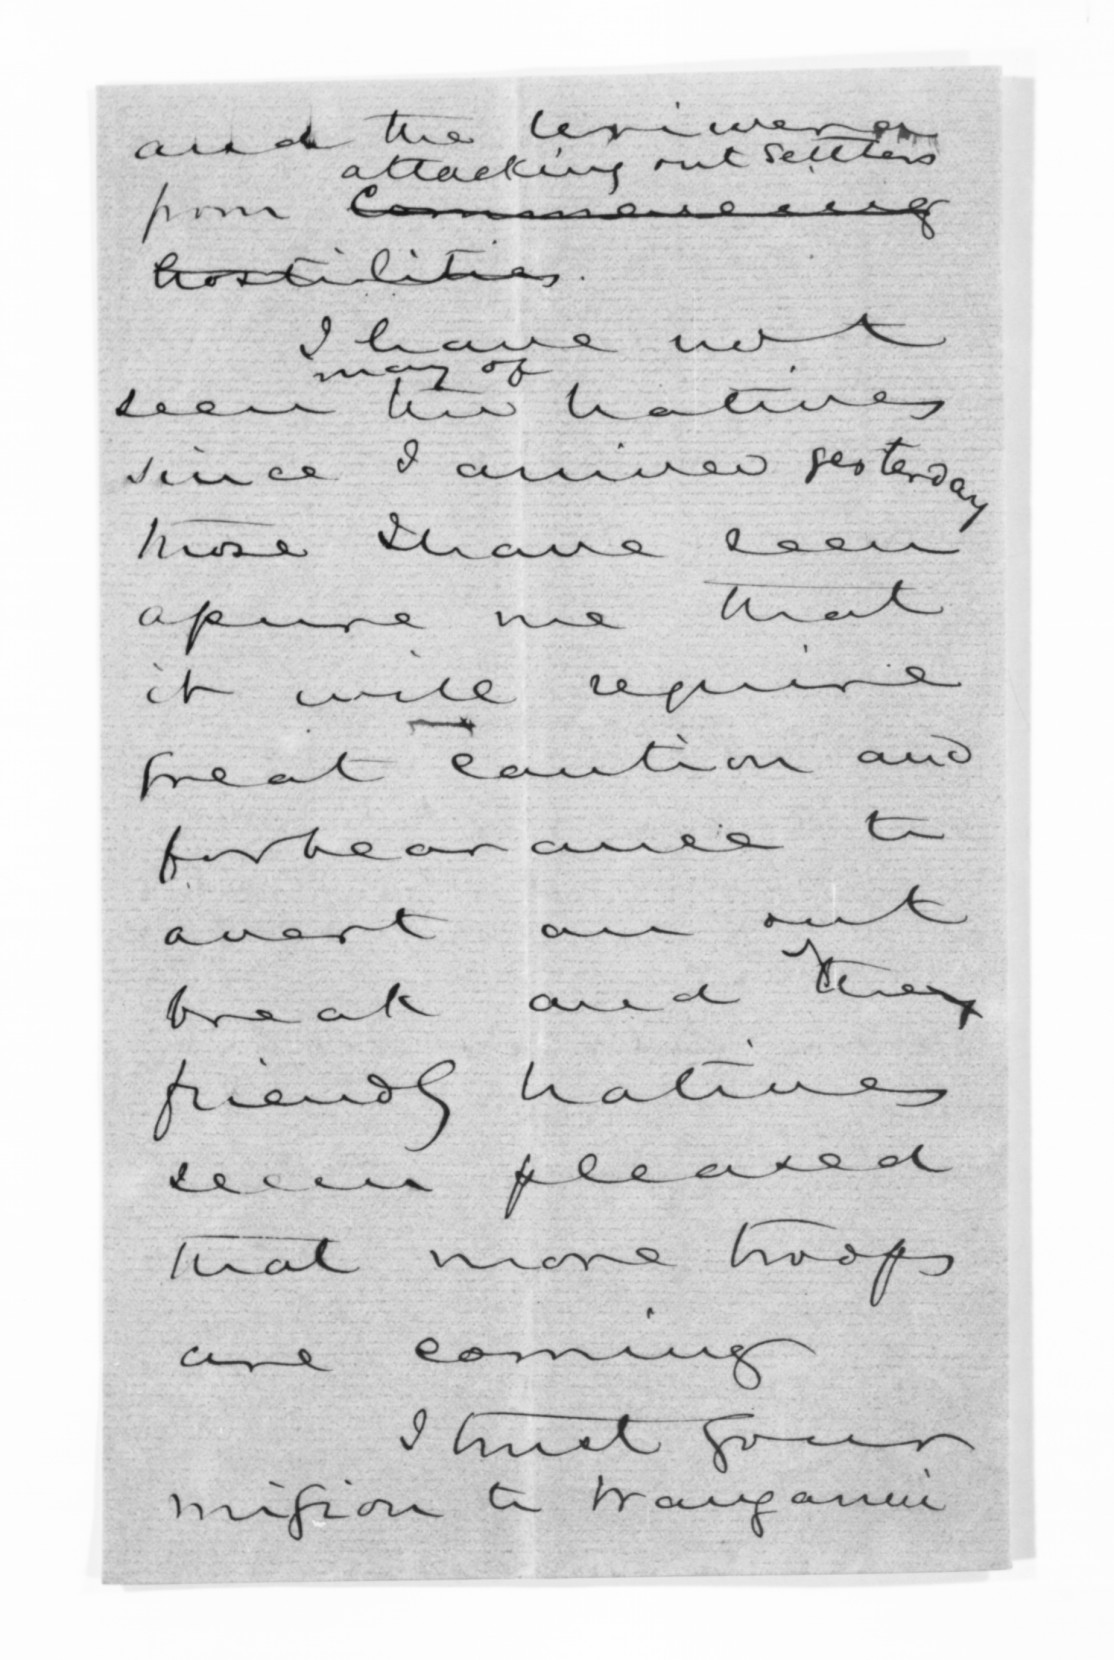 and the Uriwera
attacking out settlers
from Commencing
hostilities.
I have not
many of
seen the natives
since I arrived yesterday
those I have seen
assure me that
it will require
great caution and
forbearance to
avert an out
break and they
friendly natives
seem pleased
that more troops
are coming
I trust your
mission to Wanganui